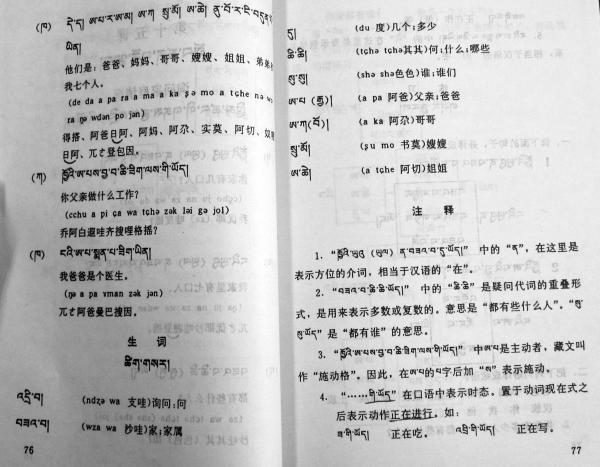 (ཁ) དེ་ད། ཨ་པ་ར་ཨ་མ། ཨ་ཀ སྲུ་མོ། ཨ་ཆེ། ནུ་བོ་ར་ང་བདུན་
ཡིན།
他们是：爸爸、妈妈、哥哥、嫂嫂、姐姐、弟弟
我七个人。
(de da a pa ra a ma a ka ʂə mo a tɕhe nə wo
ra ŋə wdən po jən)
得搭、阿爸日阿、阿妈、阿尕、实莫、阿切、
日阿、兀ㄜ登包因。
(ཀ) ཁྱོའི་ཨ་པས་བྱ་བ་ཆི་ཟིག་ལས་གི་ཡོད།
你父亲做什么工作?
(cchu a pi ɕa wa tɕhə zək ləi gə jol)
乔阿白遐哇齐搜哩格摇?
(ཁ) ངའི་ཨ་པ་སྨན་པ་ཟིག་ཡིན།
我爸爸是个医生。
(ŋə a pa vman zək jən)
兀ㄜ阿爸曼巴搜因。
生 词
ཚིག་གསར།
འདྲི་བ། (ndʐə wa 支哇)询问;问
བཟའ་བ། (wza wa 抄哇)家;家属
76
དུ། (du 度)几个;多少
ཆི་ཆི། (tɕhə tɕhə其其)何;什么;哪些
སུ་སུ། (shə shə色色)谁;谁们
ཨ་པ (རྒྱ)། (a pa 阿爸)父亲;爸爸
ཨ་ཀ(བོ)། (a ka 阿尕)哥哥
སྲུ་མོ། (ʂu mo 书莫)嫂嫂
ཨ་ཆེ། (a tɕhe 阿切)姐姐
注 释
1. 中的“ན”，在这里是
表示方位的介词，相当于汉语的“在”。
2. “བཟའ་བ་ཆི་ཆི་ཡོད།” 中的“ཆི་ཆི”是疑问代词的重叠形
式，是用来表示多数或复数的。意思是“都有些什么人”。“སུ་
སུ་ཡོད”是“都有谁”的意思。
3. “ཁྱོའི་ཨ་པས་བྱ་བ་ཆི་ཟིག་ལས་གི་ཡོད།” 中ཨ་པ是主动者，藏文叫
作“施动格”。因此，在ཨ་པ的པ字后加“ས”表示施动。
4. “……གི་ཡོད”在口语中表示时态。置于动词现在式之
后表示动作正在进行。如：
ཟ་གི་ཡོད། 正在吃。 འབྲི་གི་ཡོད། 正在写。
77